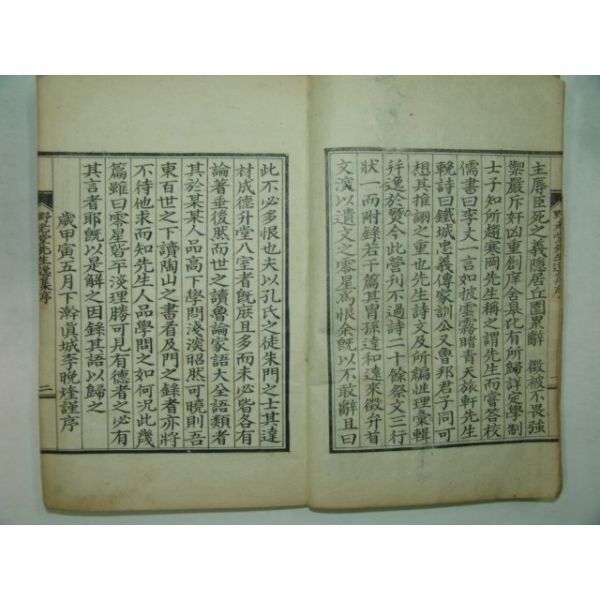 主辱臣死之義隱居丘園累辭 徵被不畏強
禦嚴斥奸凶重創庠舍皐比有所歸詳定學制
士子知所趨寒岡先生稱之謂先生而嘗答校
儒書曰李丈一言如披雲霧睹靑天旅軒先生
輓詩曰鐵城忠義傳家訓公又魯邦君子同可
想其推詡之重也先生詩文及所編性理彙輯
幷逸於燹今此營刊不過詩二十餘祭文三行
狀一而附錄若干篇其胄孫達和達來徵弁首
文演以遺文之零星爲恨余旣以不敢辭且曰
此不必多恨也夫以孔氏之徒朱門之士其達
材成德升堂八室者旣庶且多而未必皆各有
論著垂後然而世之讀魯論家語大全語類者
其於某某人品高下學問淺深昭然可曉則吾
東百世之下讀陶山之書者及門之錄者亦將
不待他求而知先生人品學問之如何况此幾
篇雖曰零星皆平淡理勝可見有德者之必有
其言者耶旣以是解之因錄其語以歸之
歲甲寅五月下澣眞城李晩煃謹序
先生逸集序
三